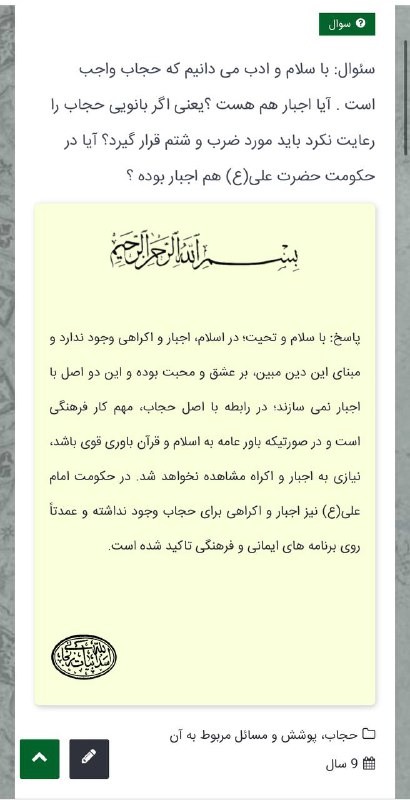 سوال
سئوال: با سلام و ادب می دانیم که حجاب واجب
است . آیا اجبار هم هست ؟یعنی اگر بانویی حجاب را
رعایت نکرد باید مورد ضرب و شتم قرار گیرد؟ آیا در
حکومت حضرت علی(ع) هم اجبار بوده ؟
بسم الله الرحمن الرحیم
پاسخ: با سلام و تحیت؛ در اسلام، اجبار و اکراهی وجود ندارد و
مبنای این دین مبین، بر عشق و محبت بوده و این دو اصل با
اجبار نمی سازند؛ در رابطه با اصل حجاب، مهم کار فرهنگی
است و در صورتیکه باور عامه به اسلام و قرآن باوری قوی باشد،
نیازی به اجبار و اکراه مشاهده نخواهد شد. در حکومت امام
علی(ع) نیز اجبار و اکراهی برای حجاب وجود نداشته و عمدتاً
روی برنامه های ایمانی و فرهنگی تاکید شده است.
حجاب، پوشش و مسائل مربوط به آن
9 سال